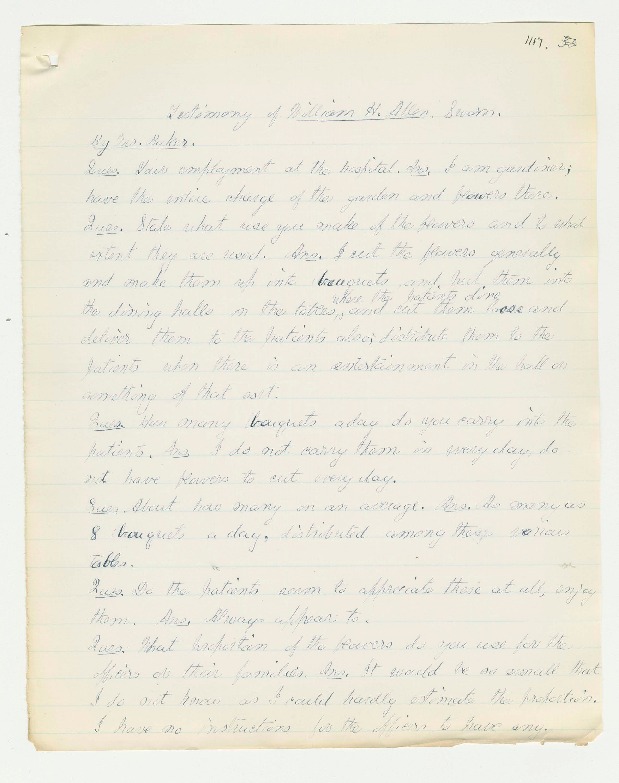 1117.
Testimony of William H. Allen. Sworn.
By Mr. Baker.
Ques. Your employment at the hospital. Ans. I am gardiner;
have the entire charge of the garden and flowers there.
Ques. State what use you make of the flowers and to what
extent they are used. Ans. I cut the flowers generally
and make them up into bouquets and put them into
where the patients dine
the dining halls on the tables, and cut them loose and
deliver them to the patients also; distribute them to the
patients when there is an entertainment in the hall or
something of that sort.
Ques. How many bouquets a day do you carry into the
patients. Ans. I do not carry them in every day, do
not have flowers to cut every day.
Ques. About how many on an average. Ans. As many as
8 bouquets a day, distributed among these various
tables.
Ques. Do the patients seem to appreciate those at all, enjoy
them. Ans. Always appear to.
Ques. What proportion of the flowers do you use for the
officers or their families. Ans. It would be so small that
I do not know as I could hardly estimate the proportion.
I have no instructions for the officers to have any.